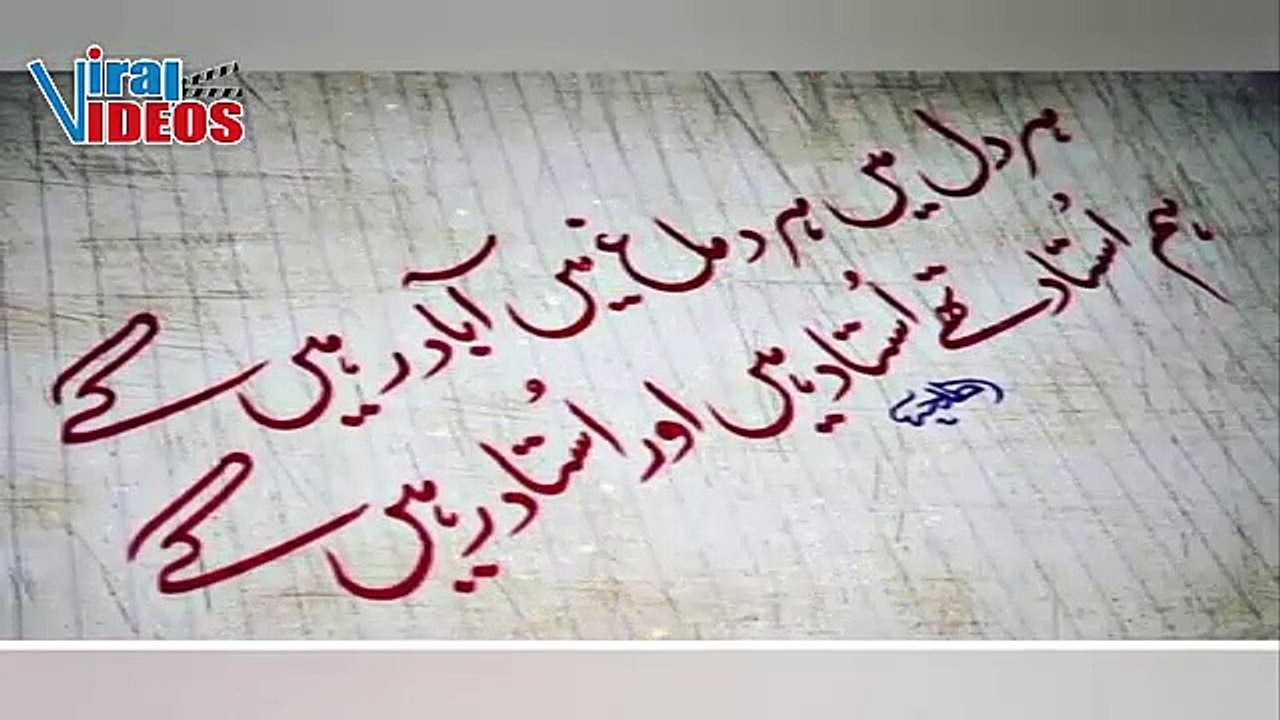 Viral
VIDEOS
ہر دل میں ہر دماغ میں آباد رہیں گے
ہم اُستاد تھے اُستاد ہیں اور اُستاد رہیں گے